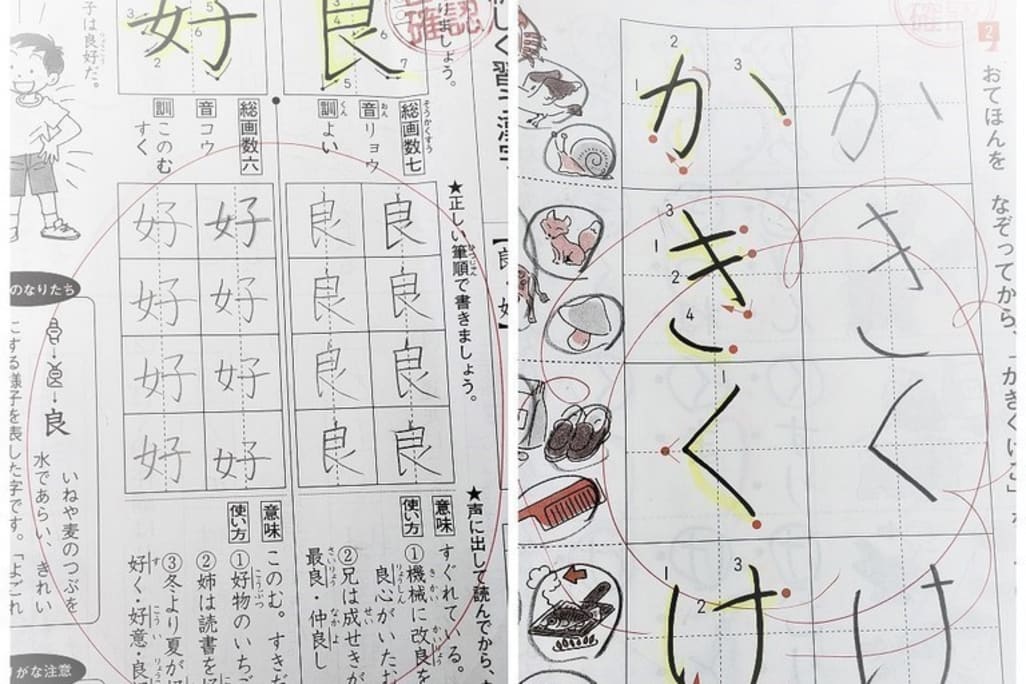 確認
りましょう。
★正しい筆順で書きましょう。
★声に出して読んでから、
良
総画数七
音 リョウ
訓 よい
良 良
良 良
良 良
良 良
意味 すぐれている。
使い方 ①機械に改良を
良心がいた
②兄は成せきが
最良・仲良し
好
総画数六
音 コウ
訓 このむ
すく
好 好
好 好
好 好
好 好
意味 このむ。すきだ
使い方 ①好物のいちご
②姉は読書を
③冬より夏が
好く・好意・良
子は良好だ。
のなりたち
良
いねや麦のつぶを
水であらい、きれい
にする様子を表した字です。「よごれ
がな注意
確認
2 おてほんを なぞってから、「かきくけこ」
か
き
く
け
か
き
く
け